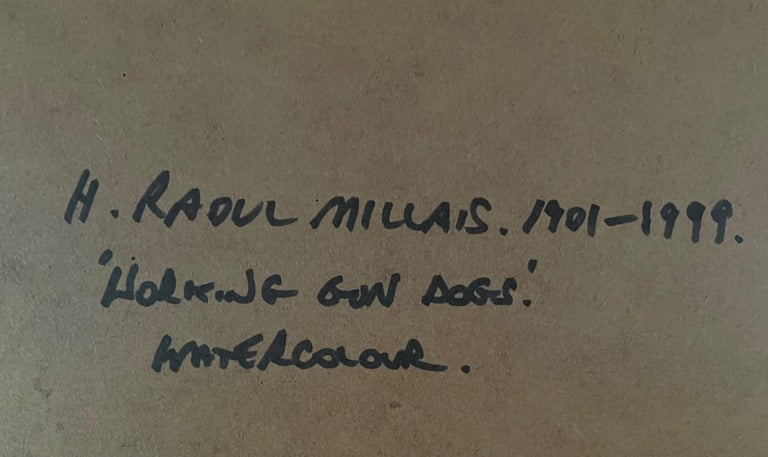 H. RAOUL MILLAIS. 1901-1999.
'WORKING GUN DOGS'.
WATERCOLOUR.